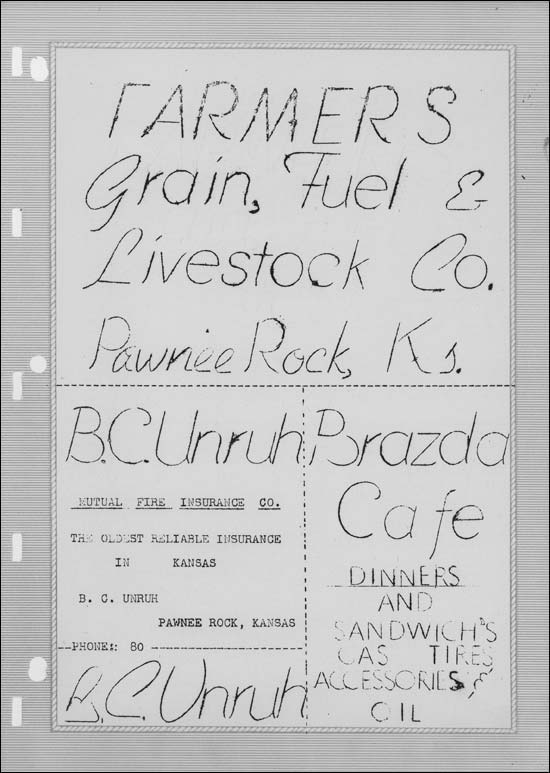 FARMERS
Grain, Fuel &
Livestock Co.
Pawnee Rock, Ks.
B.C. Unruh
MUTUAL FIRE INSURANCE CO.
THE OLDEST RELIABLE INSURANCE
IN KANSAS
B. C. UNRUH
PAWNEE ROCK, KANSAS
PHONE: 80
B.C. Unruh
Brazda
Cafe
DINNERS
AND
SANDWICH'S
GAS TIRES
ACCESSORIES &
OIL